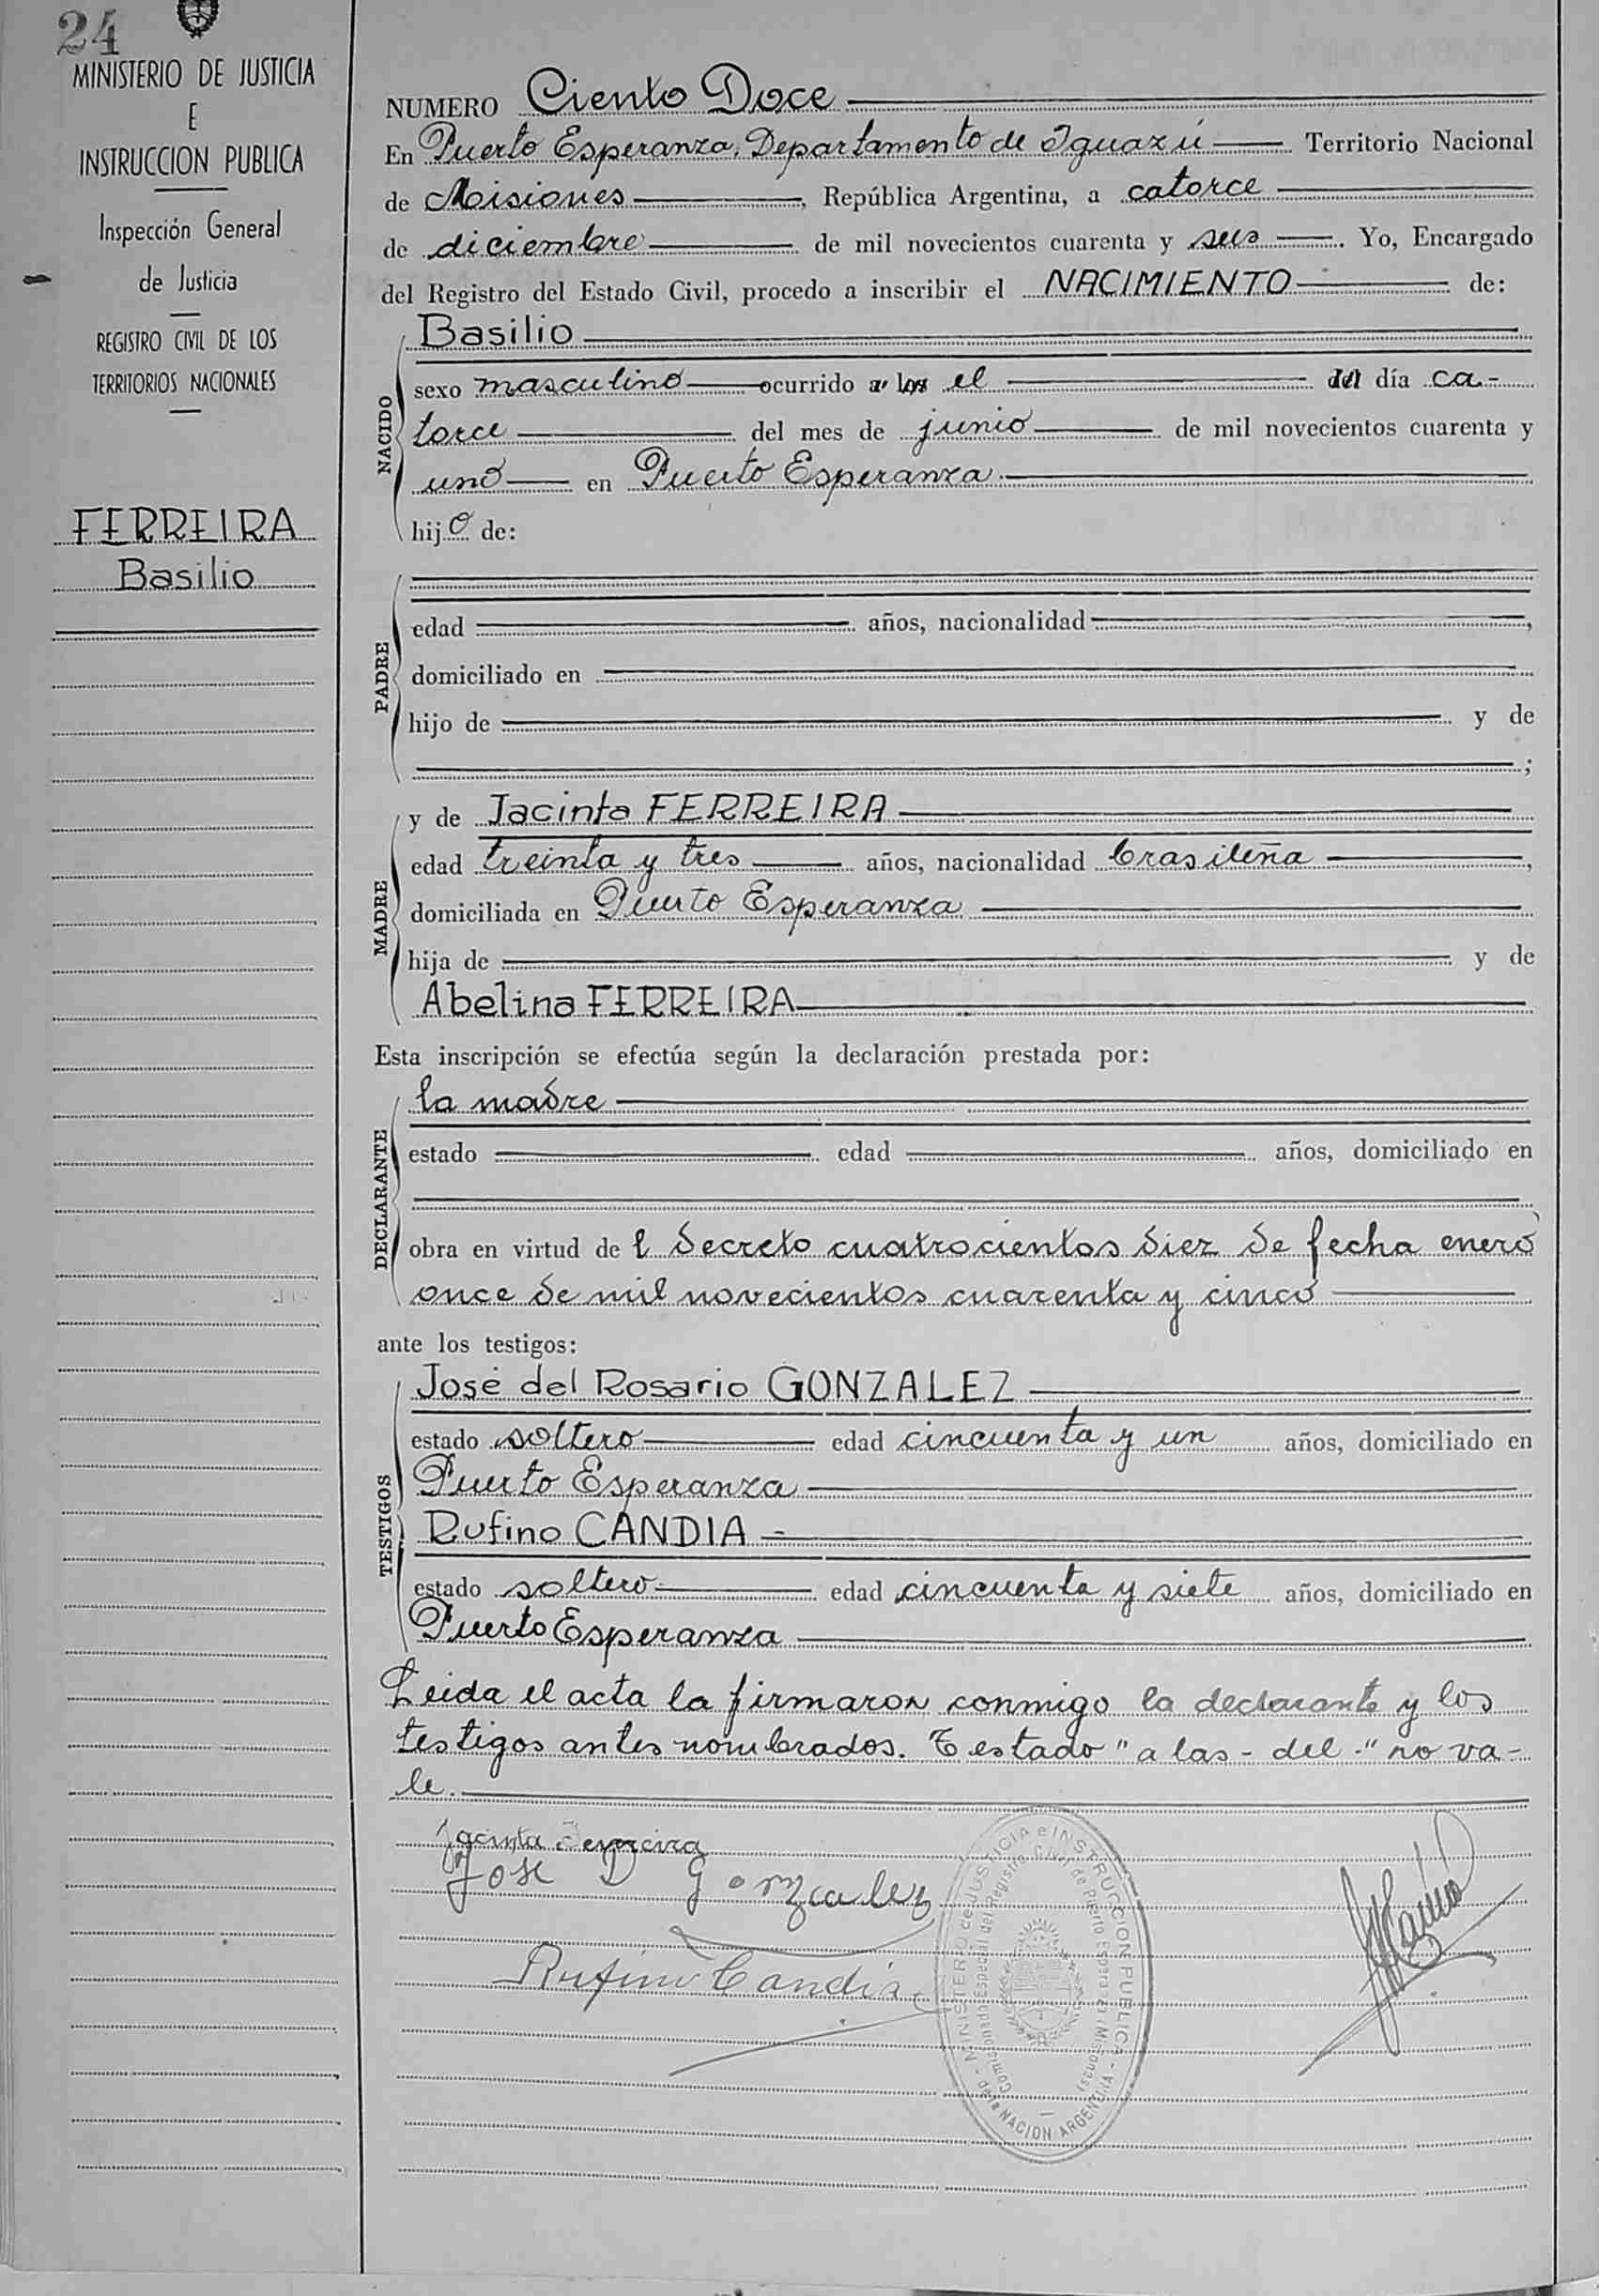 24
MINISTERIO DE JUSTICIA
E
INSTRUCCION PUBLICA
Inspección General
de Justicia
REGISTRO CIVIL DE LOS
TERRITORIOS NACIONALES
FERREIRA
Basilio
NUMERO Ciento Doce
En Puerto Esperanza, Departamento de Iguazú Territorio Nacional
de Misiones, República Argentina, a catorce
de diciembre de mil novecientos cuarenta y seis. Yo, Encargado
del Registro del Estado Civil, procedo a inscribir el NACIMIENTO de:
NACIDO
Basilio
sexo masculino ocurrido a las el del día ca-
torce del mes de junio de mil novecientos cuarenta y
uno en Puerto Esperanza
hijo de:
PADRE
edad años, nacionalidad ,
domiciliado en
hijo de y de
;
MADRE
y de Jacinta FERREIRA
edad treinta y tres años, nacionalidad brasileña ,
domiciliada en Puerto Esperanza
hija de y de
Abelina FERREIRA
Esta inscripción se efectúa según la declaración prestada por:
DECLARANTE
la madre
estado edad años, domiciliado en
obra en virtud del decreto cuatrocientos diez de fecha enero
once de mil novecientos cuarenta y cinco
ante los testigos:
TESTIGOS
José del Rosario GONZALEZ
estado soltero edad cincuenta y un años, domiciliado en
Puerto Esperanza
Rufino CANDIA
estado soltero edad cincuenta y siete años, domiciliado en
Puerto Esperanza
Leida el acta la firmaron conmigo la declarante y los
testigos antes nombrados. Testado "a las - del -" no va-
le.
Jacinta Ferreira
Jose D Gonzalez
Rufino Candia
MINISTERIO de JUSTICIA e INSTRUCCION PUBLICA
de la NACION ARGENTINA
Comisionado Especial del Registro Civil de Puerto Esperanza (Misiones)